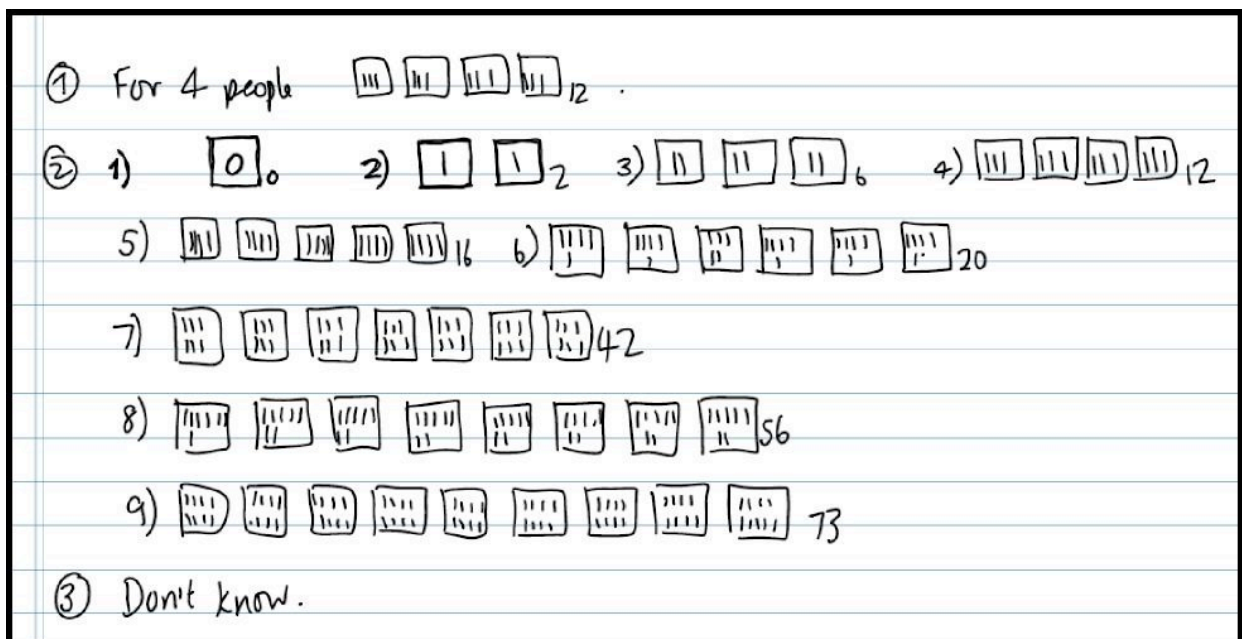 ① For 4 people 12 .
② 1) 0 0 2) 2 3) 6 4) 12
5) 16 6) 20
7) 42
8) 56
9) 73
③ Don't know.